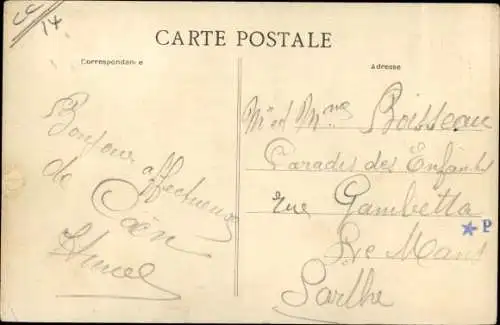 CARTE POSTALE
Correspondance
Adresse
Bonjour
affectueux
de Caen
Mr et Mme Boisseau
Paradis des Enfants
rue Gambetta
Le Mans
Sarthe
P